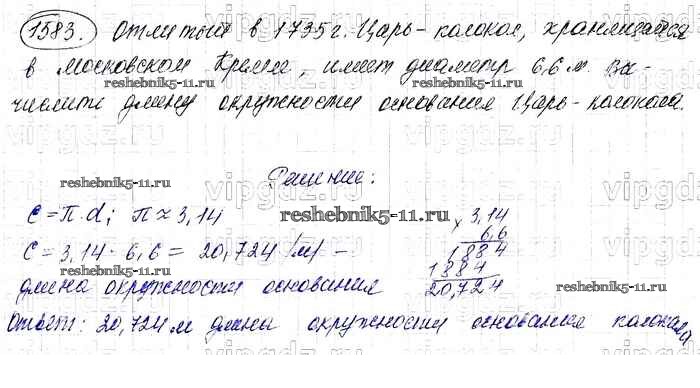 1583. Отлитый в 1735 г. Царь-колокол, хранящийся
в Московском Кремле, имеет диаметр 6,6 м. Вы-
числить длину окружности основания Царь-колокола.
reshebnik5-11.ru
reshebnik5-11.ru
Решение:
reshebnik5-11.ru
vipgdz.ru
C = π·d; π ≈ 3,14
reshebnik5-11.ru
× 3,14
6,6
C = 3,14 · 6,6 = 20,724 /м/ –
1884
1884
длина окружности основания
20,724
reshebnik5-11.ru
Ответ: 20,724 м длина окружности основания колокола